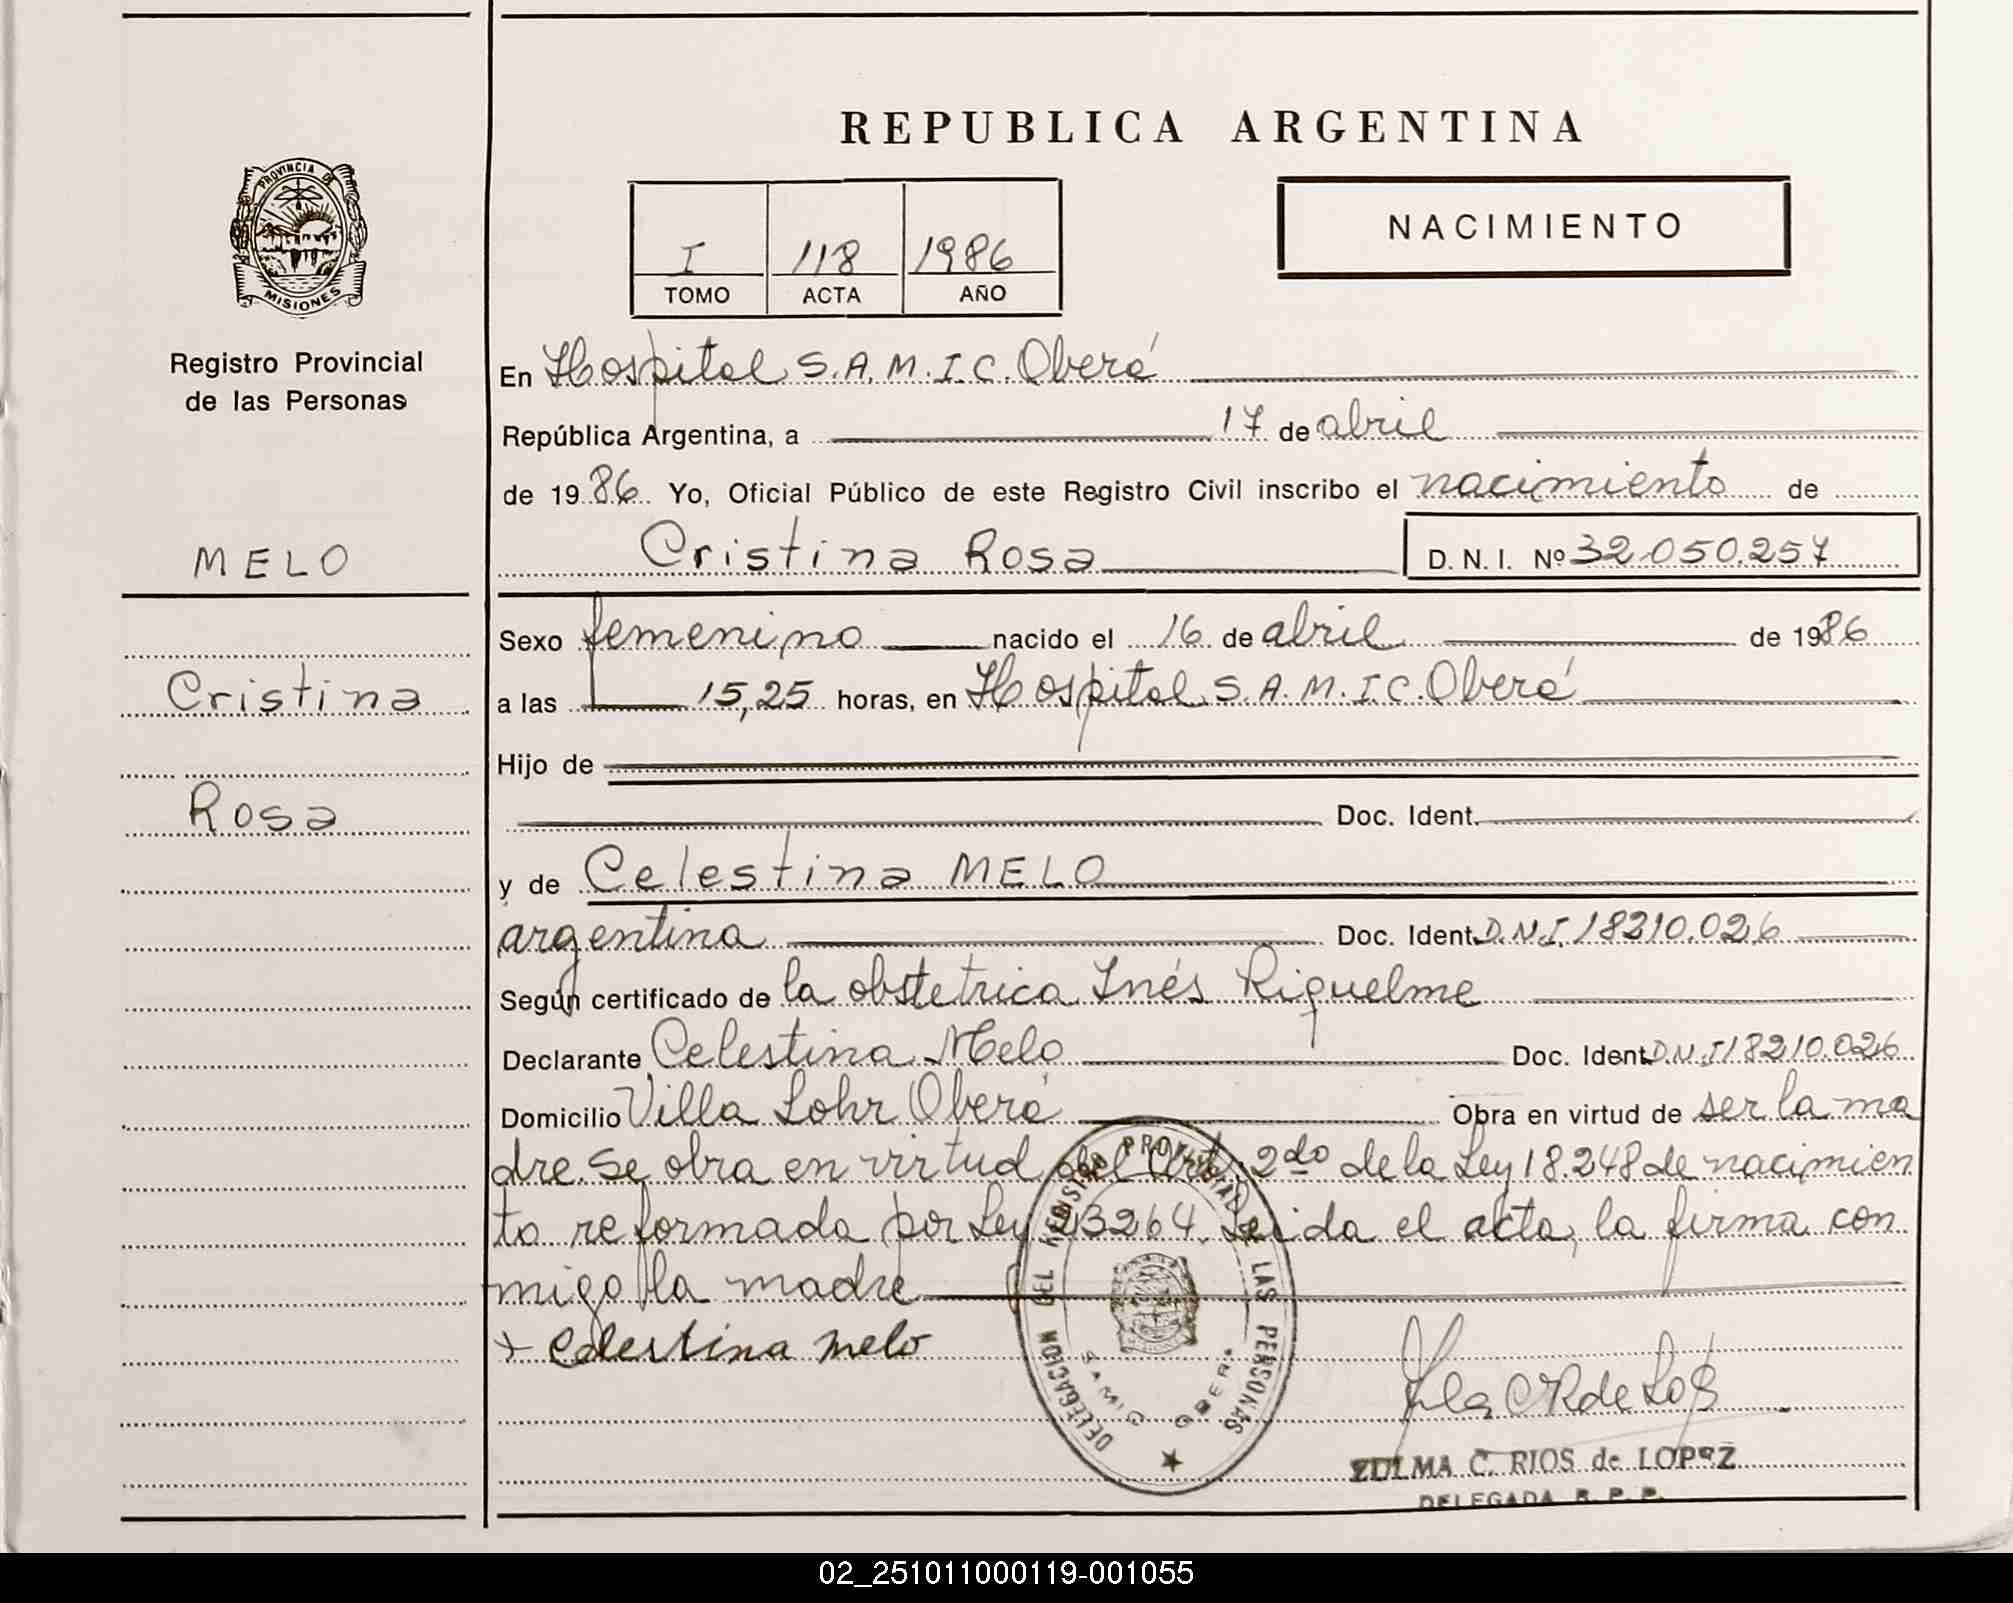 REPUBLICA ARGENTINA
PROVINCIA DE
MISIONES
Registro Provincial
de las Personas
I 118 1986
TOMO ACTA AÑO
NACIMIENTO
En Hospital S.A.M.I.C. Oberá
República Argentina, a 17 de abril
de 1986 Yo, Oficial Público de este Registro Civil inscribo el nacimiento de
MELO
Cristina Rosa D. N. I. Nº 32.050.257
Sexo femenino nacido el 16 de abril de 1986
Cristina
a las 15,25 horas, en Hospital S.A.M.I.C. Oberá
Hijo de
Rosa
Doc. Ident.
y de Celestina MELO
argentina Doc. Ident. D.N.I. 18210.026
Según certificado de la obstetrica Inés Riquelme
Declarante Celestina Melo Doc. Ident. D.N.I 18210.026
Domicilio Villa Lohr Oberá Obra en virtud de ser la ma
dre. Se obra en virtud del Art. 2do de la Ley 18.248 de nacimien
to reformada por Ley 23264. Leida el acta, la firma con
migo la madre
+ Celestina Melo
DELEGACION DEL REGISTRO PROVINCIAL DE LAS PERSONAS
SAMIC OBERA
ZULMA C. RIOS de LOPEZ
DELEGADA R. P. P.
02_251011000119-001055